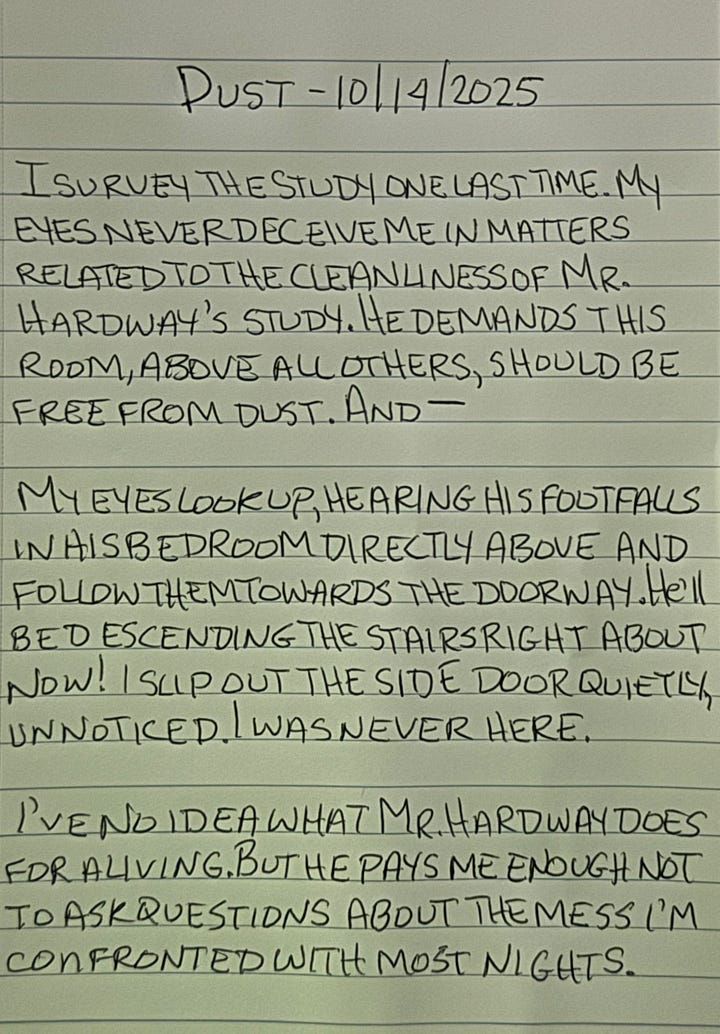 DUST - 10/14/2025
I SURVEY THE STUDY ONE LAST TIME. MY
EYES NEVER DECEIVE ME IN MATTERS
RELATED TO THE CLEANLINESS OF MR.
HARDWAY'S STUDY. HE DEMANDS THIS
ROOM, ABOVE ALL OTHERS, SHOULD BE
FREE FROM DUST. AND —
MY EYES LOOK UP, HEARING HIS FOOTFALLS
IN HIS BEDROOM DIRECTLY ABOVE AND
FOLLOW THEM TOWARDS THE DOORWAY. He'll
BE DESCENDING THE STAIRS RIGHT ABOUT
NOW! I SLIP OUT THE SIDE DOOR QUIETLY,
UNNOTICED. I WAS NEVER HERE.
I'VE NO IDEA WHAT MR. HARDWAY DOES
FOR A LIVING. BUT HE PAYS ME ENOUGH NOT
TO ASK QUESTIONS ABOUT THE MESS I'M
CONFRONTED WITH MOST NIGHTS.